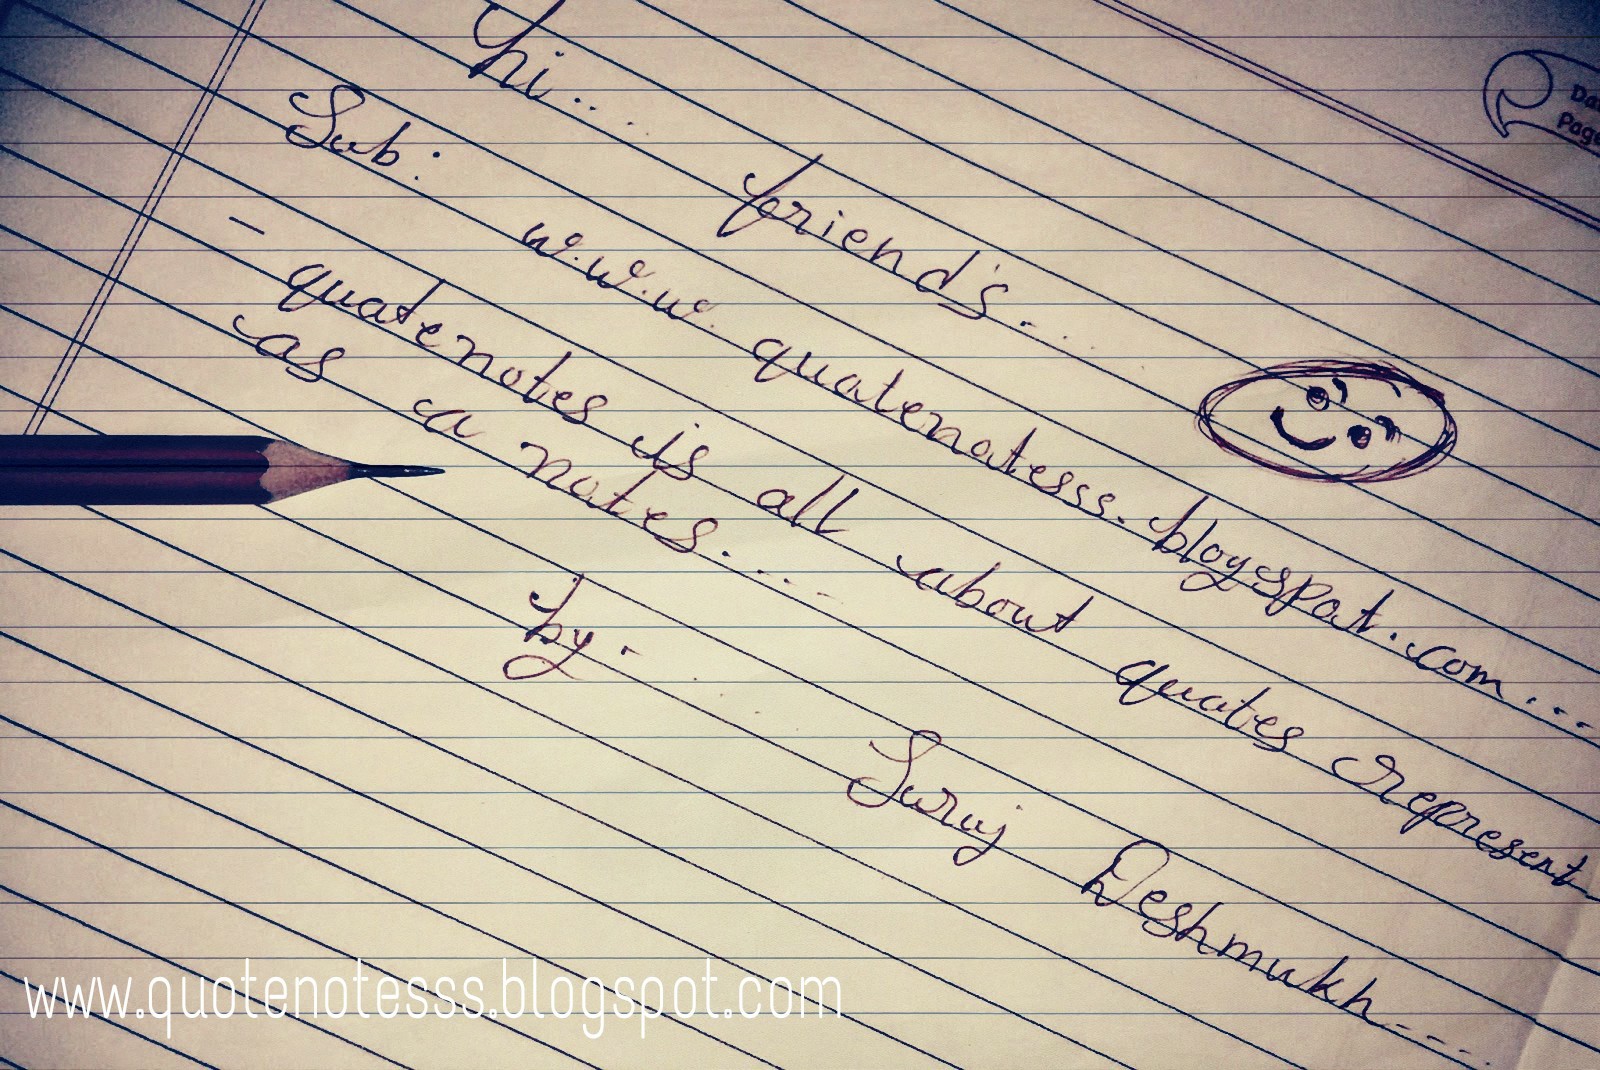 hi.. . friend's. . . .
Sub: w.w.w. quotenotesss.blogspot.com....
– quotenotes is all about quotes represent
as a notes....
by. . .
Suraj Deshmukh....
Page
www.quotenotesss.blogspot.com